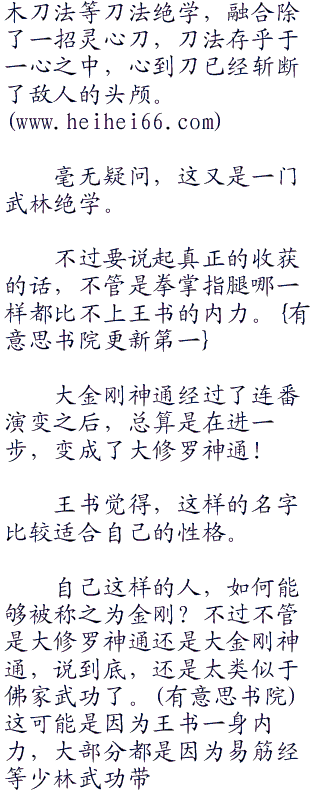 木刀法等刀法绝学，融合除
了一招灵心刀，刀法存乎于
一心之中，心到刀已经斩断
了敌人的头颅。
(www.heihei66.com)
毫无疑问，这又是一门
武林绝学。
不过要说起真正的收获
的话，不管是拳掌指腿哪一
样都比不上王书的内力。{有
意思书院更新第一}
大金刚神通经过了连番
演变之后，总算是在进一
步，变成了大修罗神通！
王书觉得，这样的名字
比较适合自己的性格。
自己这样的人，如何能
够被称之为金刚？不过不管
是大修罗神通还是大金刚神
通，说到底，还是太类似于
佛家武功了。(有意思书院)
这可能是因为王书一身内
力，大部分都是因为易筋经
等少林武功带